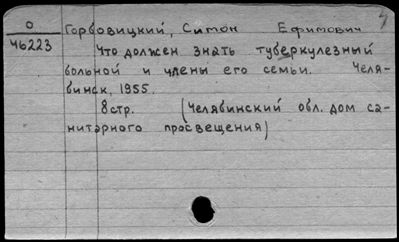 О
46223
Горбовицкий, Симон Ефимович
Что должен знать туберкулезный
больной и члены его семьи. Челя-
бинск, 1955.
8стр. (Челябинский обл. дом са-
нитарного просвещения)